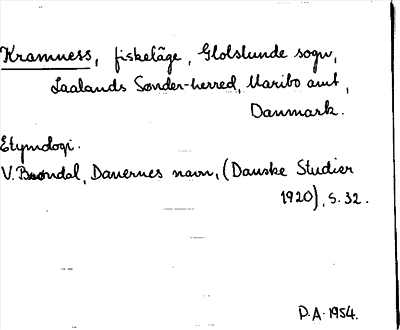 Kramness, fiskeläge, Glolslunde sogn,
Laalands Sønder-herred, Maribo amt,
Danmark.
Etymologi.
V. Brøndal, Danernes navn, (Danske Studier
1920), s. 32.
D.A. 1954.